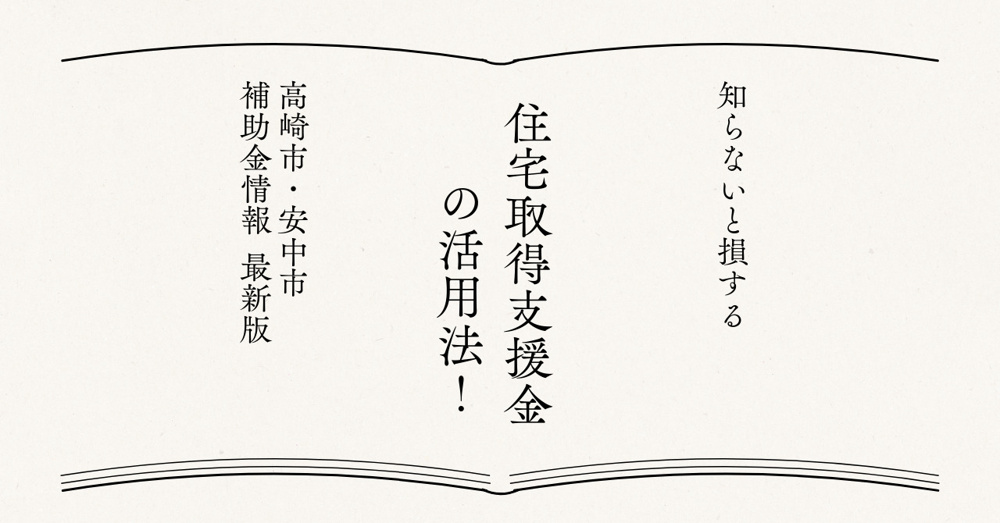 知らないと損する
住宅取得支援金
の活用法！
高崎市・安中市
補助金情報 最新版